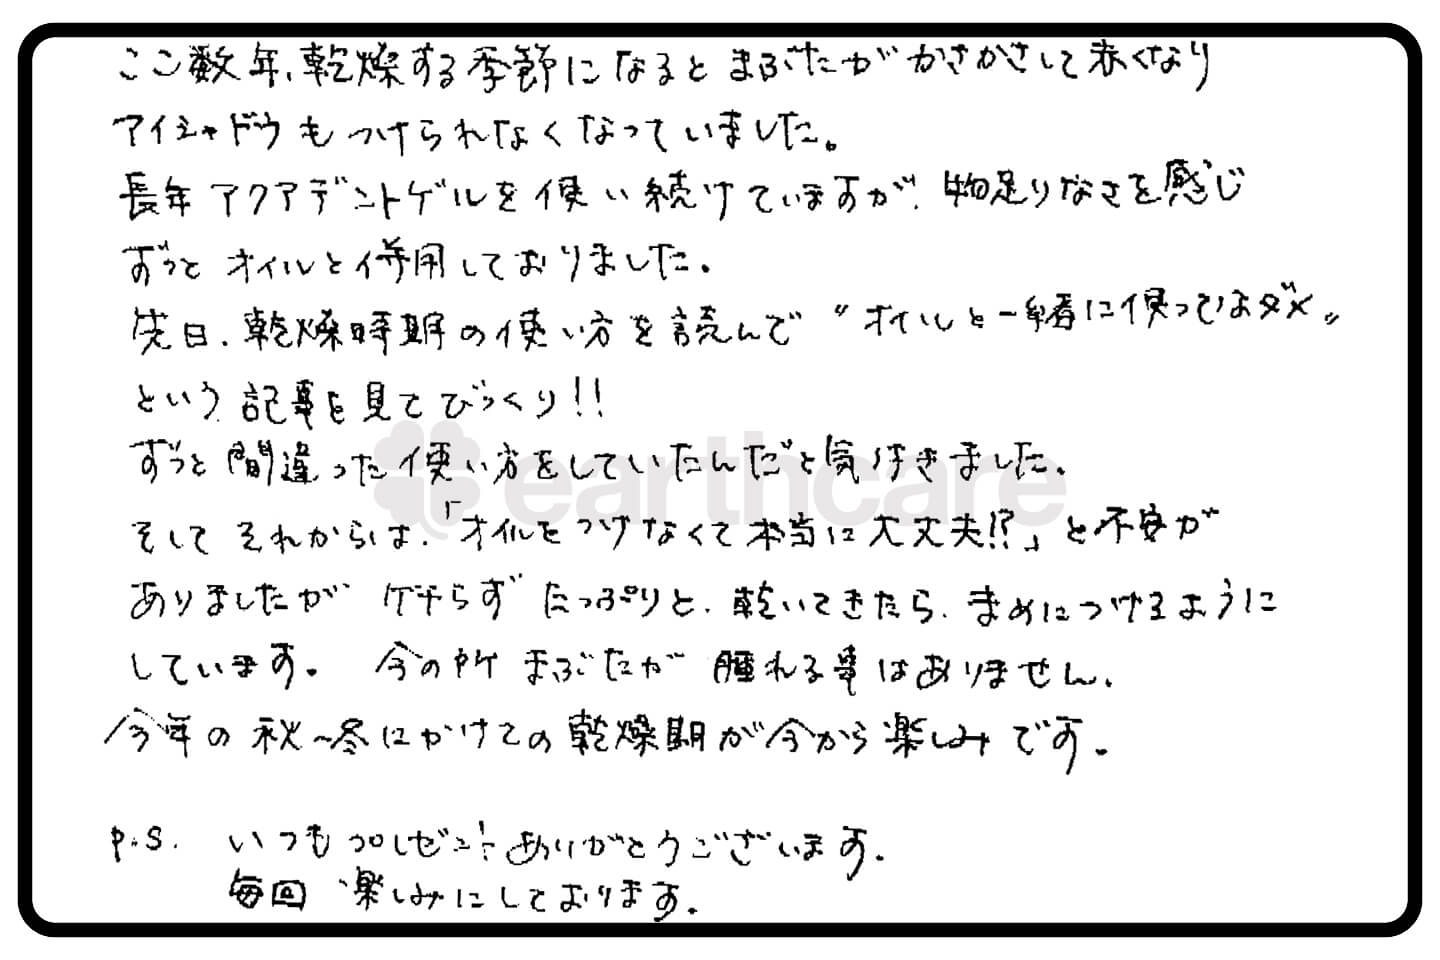 ここ数年、乾燥する季節になるとまぶたがかさかさして赤くなり
アイシャドウもつけられなくなっていました。
長年アクアデントゲルを使い続けていますが、物足りなさを感じ
ずっとオイルと併用しておりました。
先日、乾燥時期の使い方を読んで〝オイルと一緒に使ってはダメ〟
という記事を見てびっくり!!
ずっと間違った使い方をしていたんだと気付きました。
earthcare
そしてそれからは、「オイルをつけなくて本当に大丈夫!?」と不安が
ありましたがケチらずたっぷりと、乾いてきたら、まめにつけるように
しています。今の所まぶたが腫れる事はありません。
今年の秋~冬にかけての乾燥期が今から楽しみです。
P.S. いつもプレゼントありがとうございます。
毎回楽しみにしております。